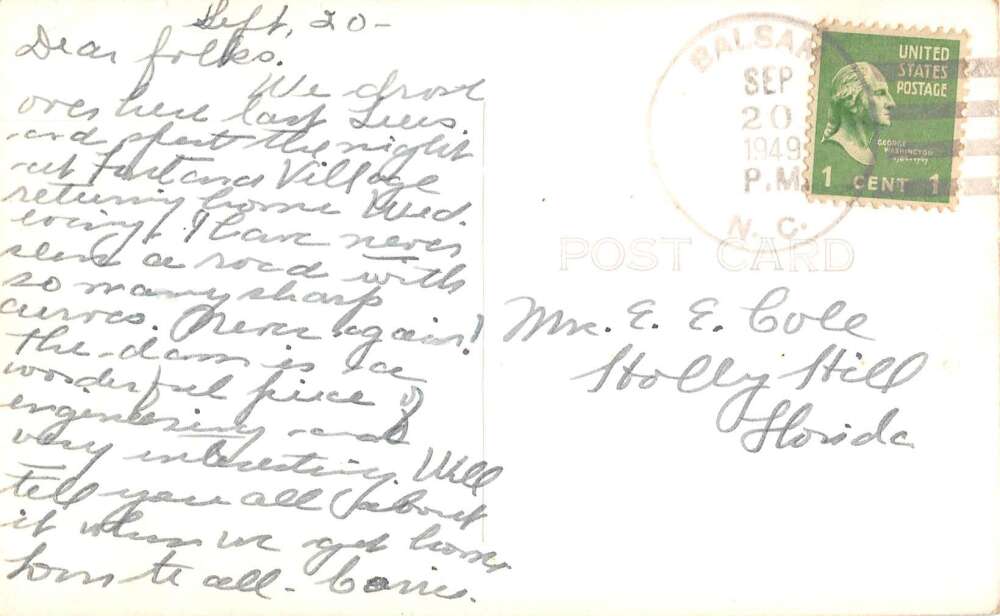 Sept, 20-
Dear folks.
We drove
over here last Tues.
and spent the night
at Fontana Village
returning home Wed.
evening. I have never
seen a road with
so many sharp
curves. Never again!
the dam is a
wonderful piece of
engineering and
very interesting Will
tell you all about
it when we get home
Love to all - Carrie.
BALSAM
SEP
20
1949
P.M.
N. C.
UNITED
STATES
POSTAGE
GEORGE
WASHINGTON
1 CENT 1
POST CARD
Mr. E. E. Cole
Holly Hill
Florida